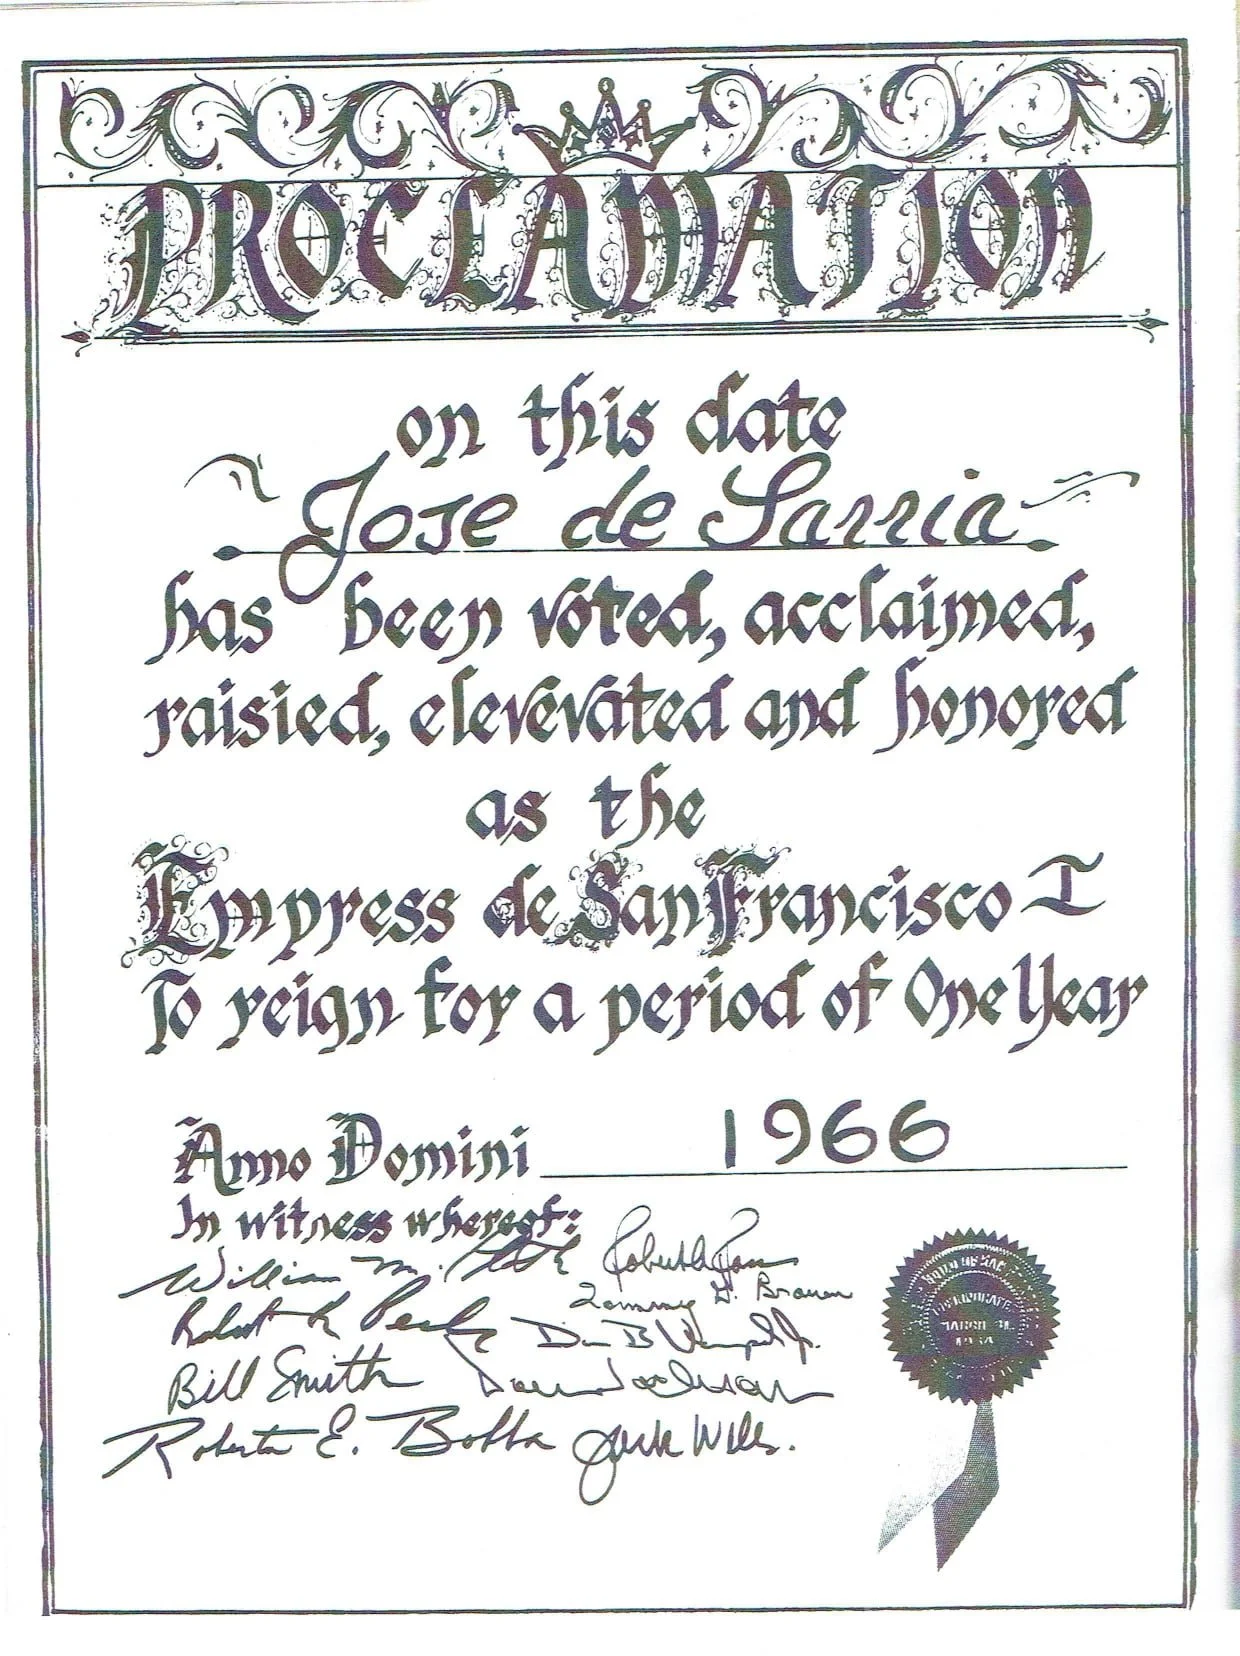 PROCLAMATION
on this date
Jose de Sarria
has been voted, acclaimed,
raisied, elevevated and honored
as the
Empress de San Francisco I
To reign for a period of One Year
Anno Domini 1966
In witness whereof:
William M.
Robert
Bill Smith
Roberta E. Bobba
Jack Wills.